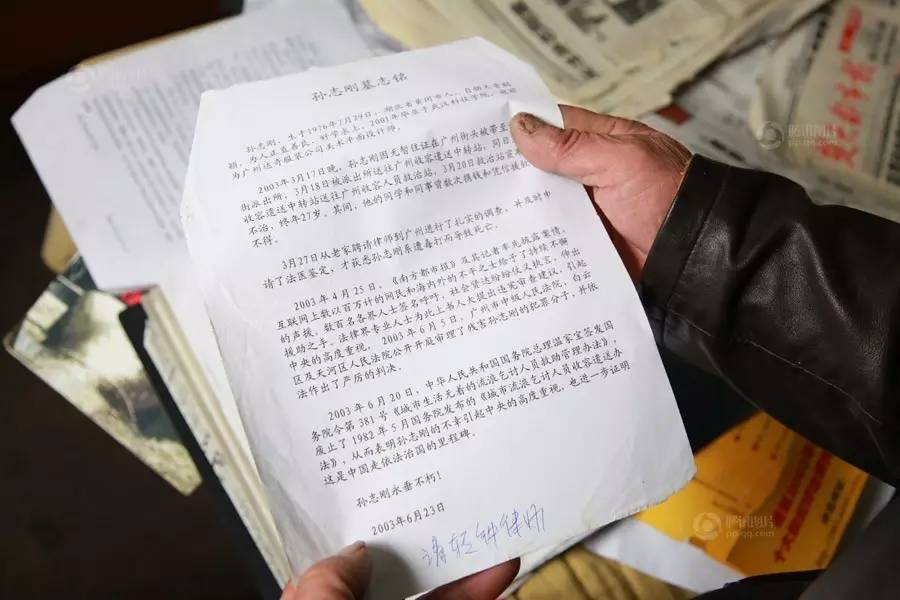 孙志刚墓志铭
孙志刚，生于1976年7月29日，湖北省黄冈市人，自幼
颖，为人正直善良，好学求上，2001年毕业于武汉科技学院，
为广州达奇服装公司美术平面设计师。
2003年3月17日晚，孙志刚因无暂住证在广州街头被带至
街派出所，3月18日被派出所送往广州收容遣送中转站，同日
收容遣送中转站送往广州收容人员救治站，3月20日救治站宣
不治，终年27岁。其间，他的同学和同事曾数次携钱和凭信
不得。
3月27日从老家聘请律师到广州进行了扎实的调查，并及时申
请了法医鉴定，才获悉孙志刚系遭毒打而导致死亡。
2003年4月25日，《南方都市报》及其记者率先披露案情，
互联网上数以百万计的网民和海内外的不平之士给予了持续不懈
的声援。数百名各界人士签名呼吁，社会贤达纷纷仗义执言，伸出
援助之手。法律界专业人士为此上书人大提出违宪审查建议，引起
中央的高度重视，2003年6月5日，广州市中级人民法院，白云
区及天河区人民法院公开开庭审理了残害孙志刚的犯罪分子，并依
法作出了严厉的判决。
2003年6月20日，中华人民共和国国务院总理温家宝签发国
务院令第381号《城市生活无着的流浪乞讨人员救助管理办法》，
废止了1982年5月国务院发布的《城市流浪乞讨人员收容遣送办
法》，从而表明孙志刚的不幸引起中央的高度重视，也进一步证明
这是中国走依法治国的里程碑。
孙志刚永垂不朽！
2003年6月23日
请轻钟律师
腾讯图片
pp.qq.com
腾讯图片